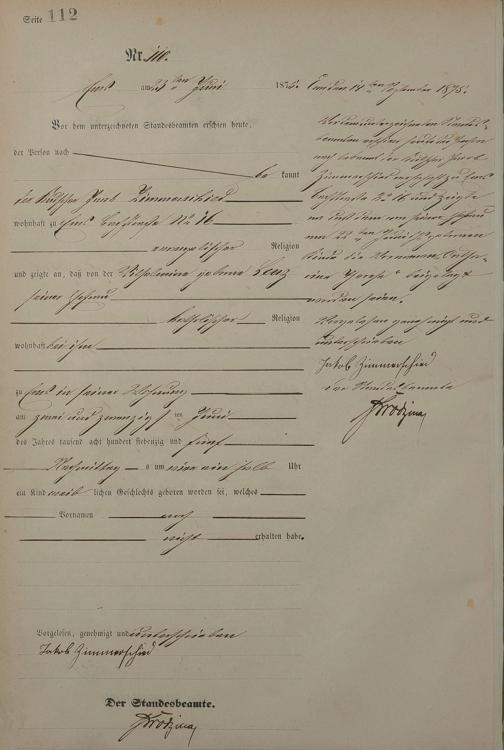 Seite 112
Nr. 111.
Ems am 23 ten Juni 1875.
Vor dem unterzeichneten Standesbeamten erschien heute,
der Person nach
be kannt
der Kutscher Jacob Zimmerschied
wohnhaft zu Ems No 16
evangelischer Religion
und zeigte an, daß von der Wilhelmine geborne Lenz
seiner Ehefrau
katholischer Religion
wohnhaft bei ihm
zu Ems in seiner Wohnung
am zwei und zwanzigsten Juni
des Jahres tausend acht hundert siebenzig und fünf
Nachmittags um vier ein halb Uhr
ein Kind weiblichen Geschlechts geboren worden sei, welches
Vornamen noch
nicht erhalten habe.
Vorgelesen, genehmigt und unterschrieben
Jakob Zimmerschied
Der Standesbeamte.
Ems den 14 ten September 1875.
Vor dem unterzeichneten Standes-
beamten erschien heute der Person
nach bekannt der Kutscher Jacob
Zimmerschied wohnhaft zu Ems
No 16 und zeigte
an daß dem von seiner Ehefrau
am 22 ten Juni geborenen
Kind die Vornamen
beigelegt
worden seien.
Vorgelesen genehmigt und
unterschrieben
Jakob Zimmerschied
der Standesbeamte